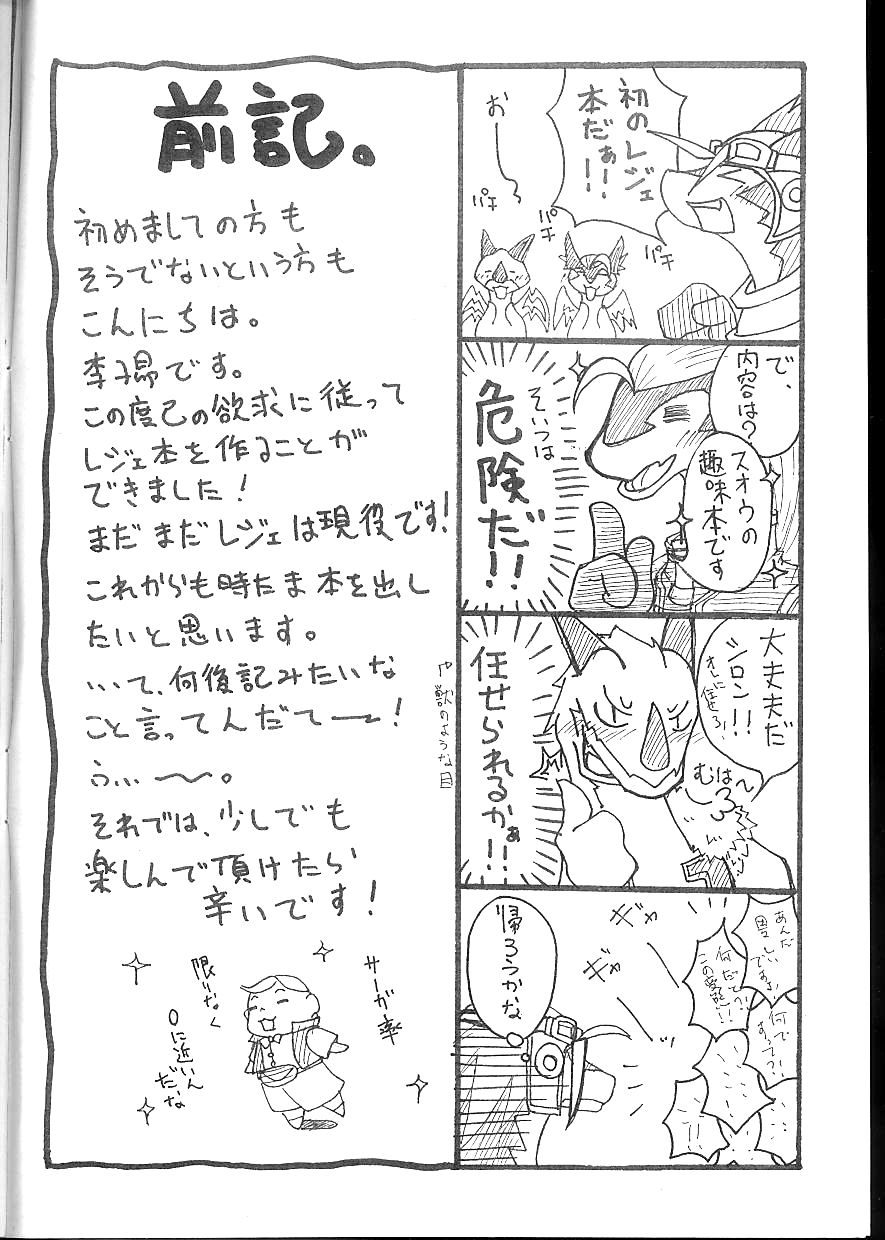 前記。
初めましての方も
そうでないという方も
こんにちは。
李子昴です。
この度己の欲求に従って
レジェ本を作ることが
できました！
まだまだレジェは現役です！
これからも時たま本を出し
たいと思います。
…って、何後記みたいな
こと言ってんだてー〜！
ふぃ〜〜。
それでは、少しでも
楽しんで頂けたら
辛いです！
サーガ率
限りなく
0に近いん
だな
初のレジェ
本だぁー!!
おー
パチ
パチ
パチ
で、
内容は？
スオウの
趣味本です
そいつは
危険だ!!
大丈夫だ
シロン!!
オレに任せろ!
むはー
任せられるかぁ!!
獣のような目
あんだ
何だてぇ
何で
ギャ
ギャ
帰ろうかな